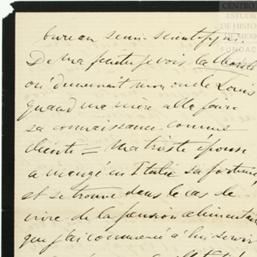 CENTRO
ESTUD
DE HISTO
FUNDAÇ
bureau semi-scientifique.
De ma fenêtre je vois la
où demeurait mon oncle Louis
quand ma mère alla faire
sa connaissance comme
cliente — Ma triste épouse
a mangé en Italie sa fortune
et se trouve dans le cas de
vivre de la pension alimentaire
que j'ai commencé à lui servir